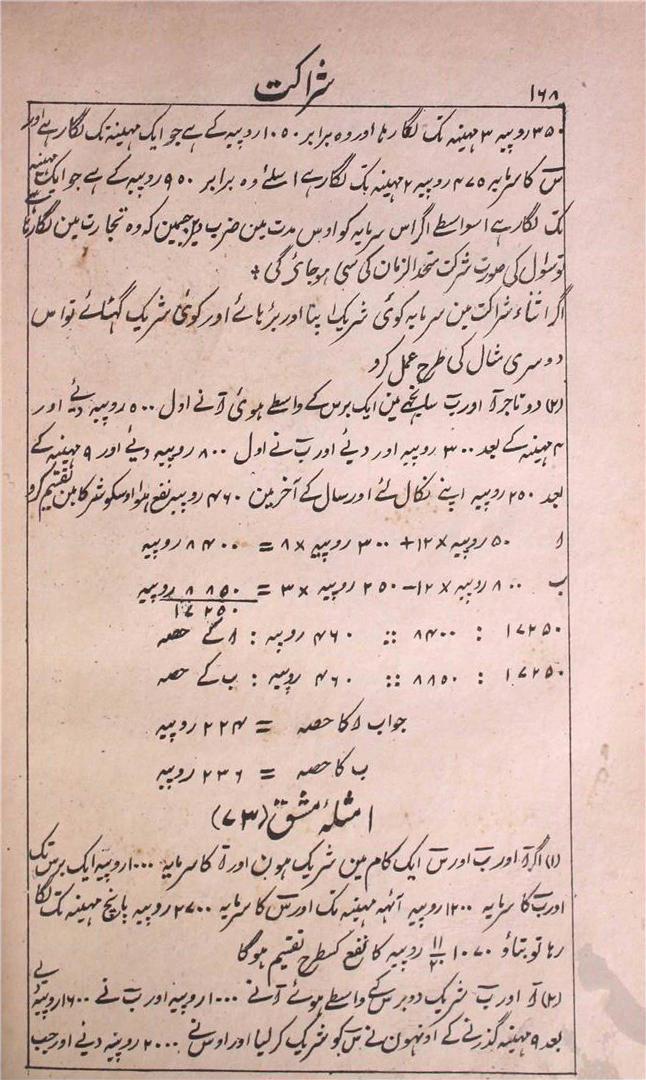 ۱۶۸
شراکت
۳۵۰ روپیہ ۳ مہینہ تک لگا رہا اور وہ برابر ۱۰۵۰ روپیہ کے ہے جو ایک مہینہ تک لگا رہے اور
س کا سرمایہ ۴۷۵ روپیہ ۲ مہینہ تک لگا رہے اسلئے وہ برابر ۹۵۰ روپیہ کے ہے جو ایک مہینہ
تک لگا رہے اسواسطے اگر اس سرمایہ کو اوس مدت مین ضرب دین جسمین کہ وہ تجارت مین لگا رہتا ہے
تو سئول کی صورت شرکت متحد الزمان کی سی ہو جائے گی ؞
اگر اثناء شراکت مین سرمایہ کوئی شریک اپنا اور بڑہائے اور کوئی شریک گہٹائے تو اس
دوسری مثال کی طرح عمل کرو
(۲) دو تاجر آ اور ب سانجہے مین ایک برس کے واسطے ہوئی آ نے اول ۵۰۰ روپیہ دئے اور
۴ مہینہ کے بعد ۳۰۰ روپیہ اور دیئے اور ب نے اول ۸۰۰ روپیہ دیئے اور ۹ مہینہ کے
بعد ۲۵۰ روپیہ اپنے نکال لئے اور سال کے آخر مین ۴۶۰ روپیہ نفع ہوا اوسکو شرکا مین تقسیم کرو
ا ۵۰ روپیہ × ۱۲ + ۳۰۰ روپیہ × ۸ = ۸۴۰۰ روپیہ
ب ۸۰۰ روپیہ × ۱۲ - ۲۵۰ روپیہ × ۳ = ۸۸۵۰ روپیہ
۱۷۲۵۰
۱۷۲۵۰ : ۸۴۰۰ :: ۴۶۰ روپیہ : ا کے حصہ
۱۷۲۵۰ : ۸۸۵۰ :: ۴۶۰ روپیہ : ب کے حصہ
جواب ا کا حصہ = ۲۲۴ روپیہ
ب کا حصہ = ۲۳۶ روپیہ
امثلۂ مشق (۷۳)
(۱) اگر آ اور ب اور س ایک کام مین شریک ہون اور آ کا سرمایہ ۱۰۰۰ روپیہ ایک برس تک
اور ب کا سرمایہ ۱۲۰۰ روپیہ آٹہہ مہینہ تک اور س کا سرمایہ ۲۷۰۰ روپیہ پانچ مہینہ تک لگا
رہا تو بتاؤ ۱۰۷۰ روپیہ کا نفع کسطرح تقسیم ہوگا
(۲) آ اور ب شریک دو برس کے واسطے ہوئے آ نے ۱۰۰۰ روپیہ اور ب نے ۱۶۰۰ روپیہ دیئے
بعد ۹ مہینہ گذرنے کے اونہون نے س کو شریک کر لیا اور اوس نے ۲۰۰۰ روپیہ دئے اور جب